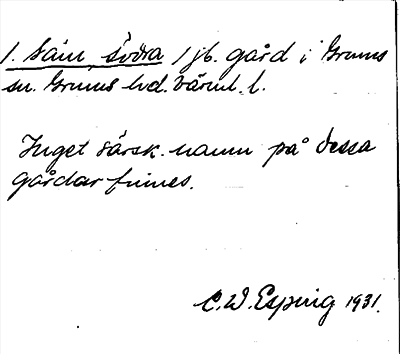 1. Säm södra 1 jb. gård i Grums
sn. Grums hd. Värml. l.
Inget särsk. namn på dessa
gårdar finnes.
C.W. Esping 1931.